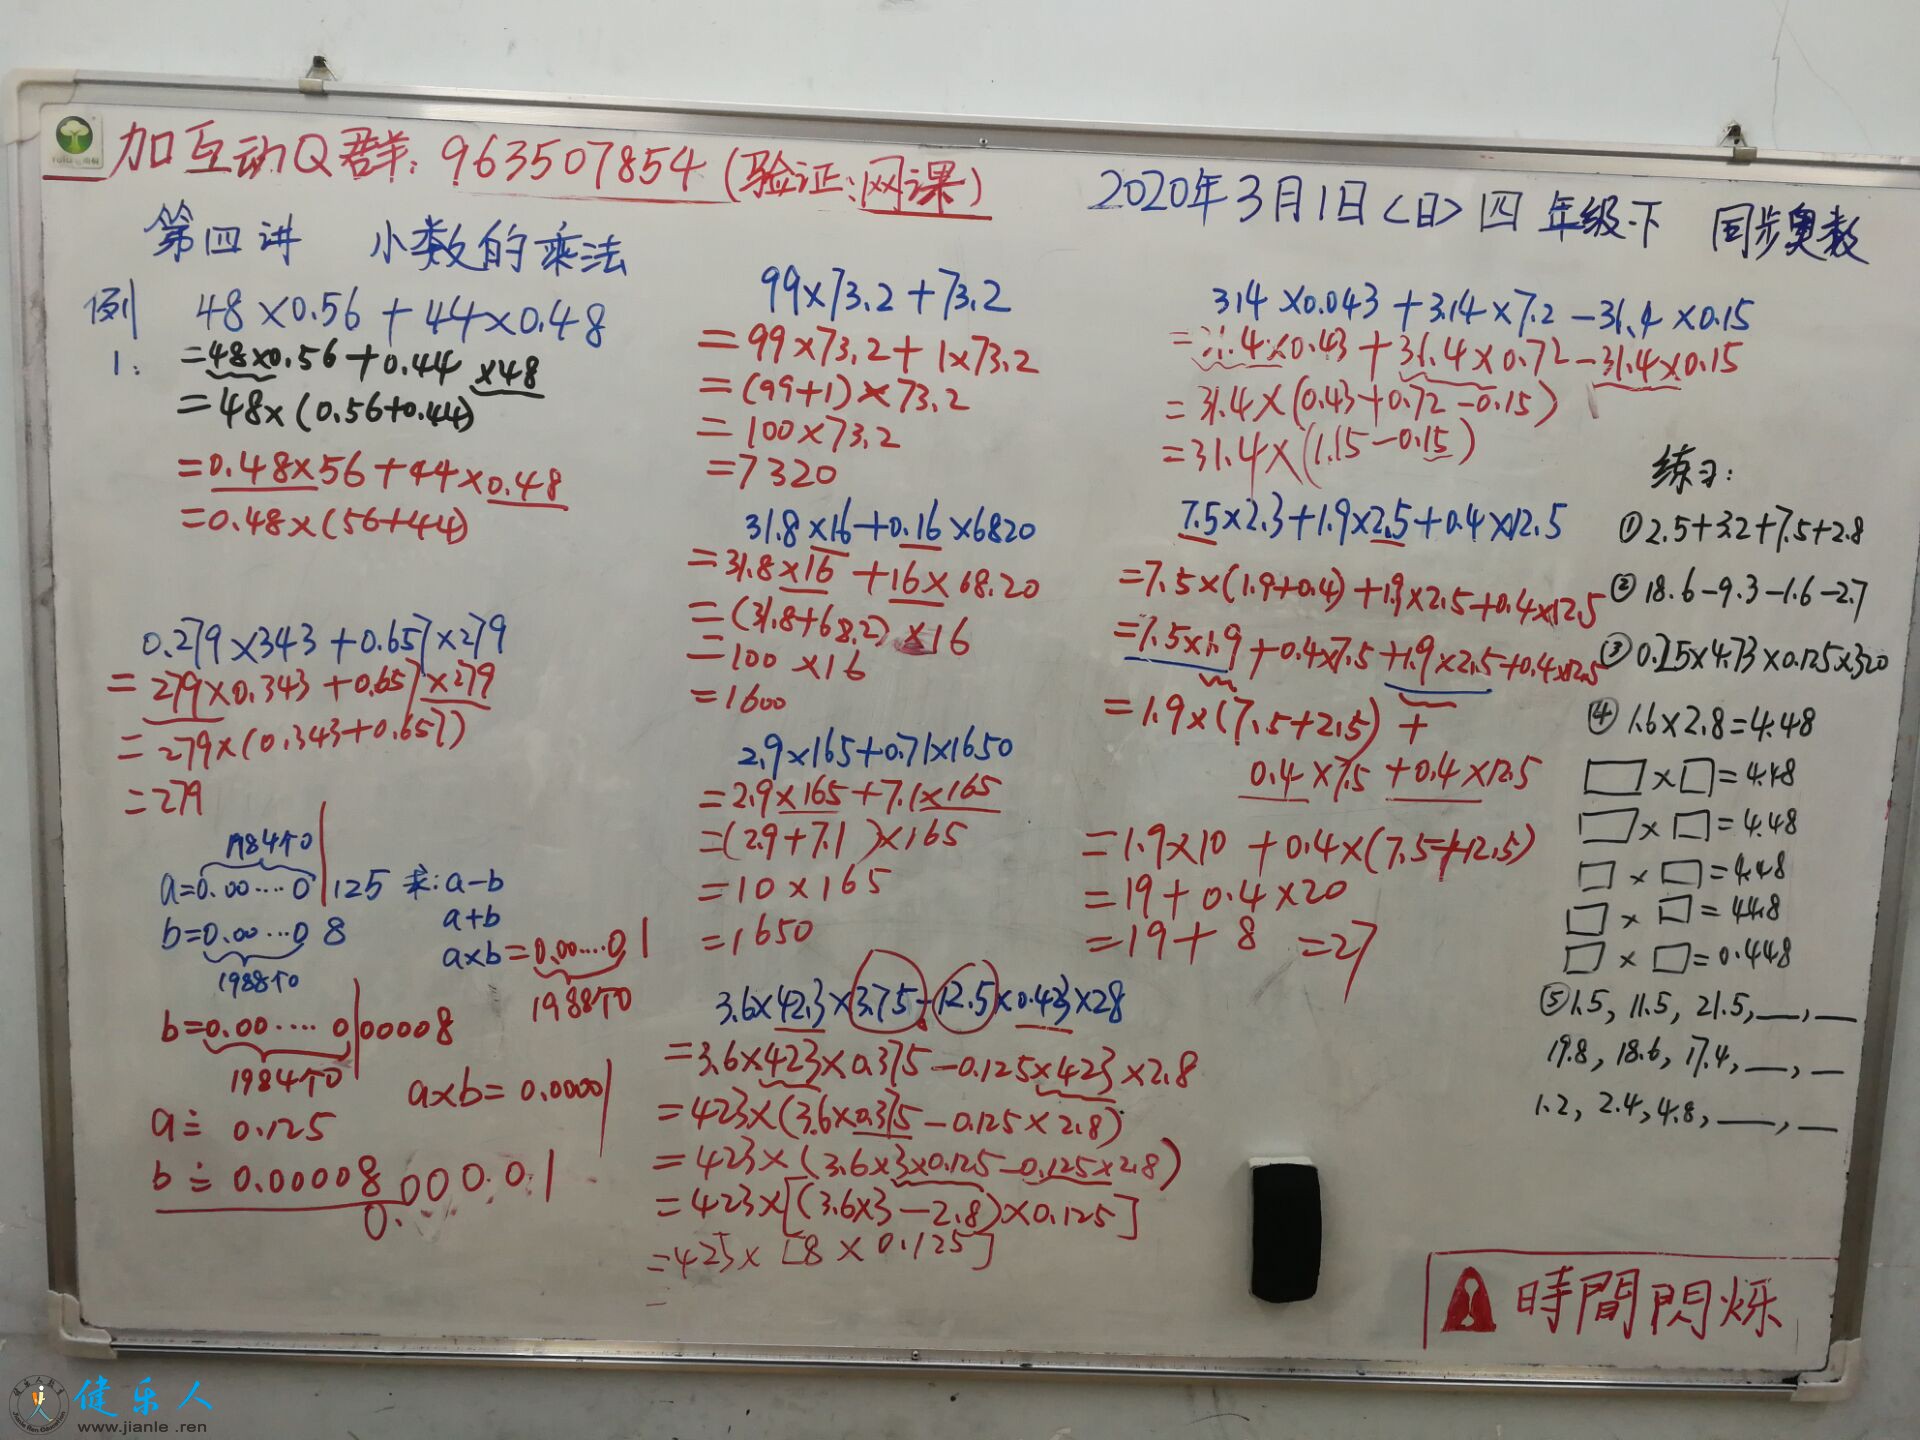 加互动Q群:963507854(验证:网课)
2020年3月1日<日>四年级·下 同步奥数
第四讲 小数的乘法
例1: 48×0.56+44×0.48
=48×0.56+0.44×48
=48×(0.56+0.44)
=0.48×56+44×0.48
=0.48×(56+44)
0.279×343+0.657×279
=279×0.343+0.657×279
=279×(0.343+0.657)
=279
1984个0
a=0.00····0 125 求:a-b
b=0.00···0 8 a+b
1988个0
a×b=0.00····0 1
1988个0
b=0.00····0 00008
1984个0
a×b=0.00001
a≐ 0.125
b≐ 0.00008
0.
99×73.2+73.2
=99×73.2+1×73.2
=(99+1)×73.2
=100×73.2
=7320
31.8×16+0.16×6820
=31.8×16+16×68.20
=(31.8+68.2)×16
=100×16
=1600
2.9×165+0.71×1650
=2.9×165+7.1×165
=(2.9+7.1)×165
=10×165
=1650
3.6×42.3×3.75-12.5×0.423×28
=3.6×423×0.375-0.125×423×2.8
=423×(3.6×0.375-0.125×2.8)
=423×(3.6×3×0.125-0.125×2.8)
=423×[(3.6×3-2.8)×0.125]
=423×[8×0.125]
314×0.043+3.14×7.2-31.4×0.15
=31.4×0.43+31.4×0.72-31.4×0.15
=31.4×(0.43+0.72-0.15)
=31.4×(1.15-0.15)
7.5×2.3+1.9×2.5+0.4×12.5
=7.5×(1.9+0.4)+1.9×2.5+0.4×12.5
=7.5×1.9+0.4×7.5+1.9×2.5+0.4×12.5
=1.9×(7.5+2.5)+
0.4×7.5+0.4×12.5
=1.9×10+0.4×(7.5+12.5)
=19+0.4×20
=19+8 =27
练习:
①2.5+3.2+7.5+2.8
②18.6-9.3-1.6-2.7
③0.25×4.73×0.125×320
④1.6×2.8=4.48
□×□=4.48
□×□=4.48
□×□=4.48
□×□=44.8
□×□=0.448
⑤1.5, 11.5, 21.5, __, __
19.8, 18.6, 17.4, __, __
1.2, 2.4, 4.8, __, __
時間閃烁
健乐人
www.jianle.ren